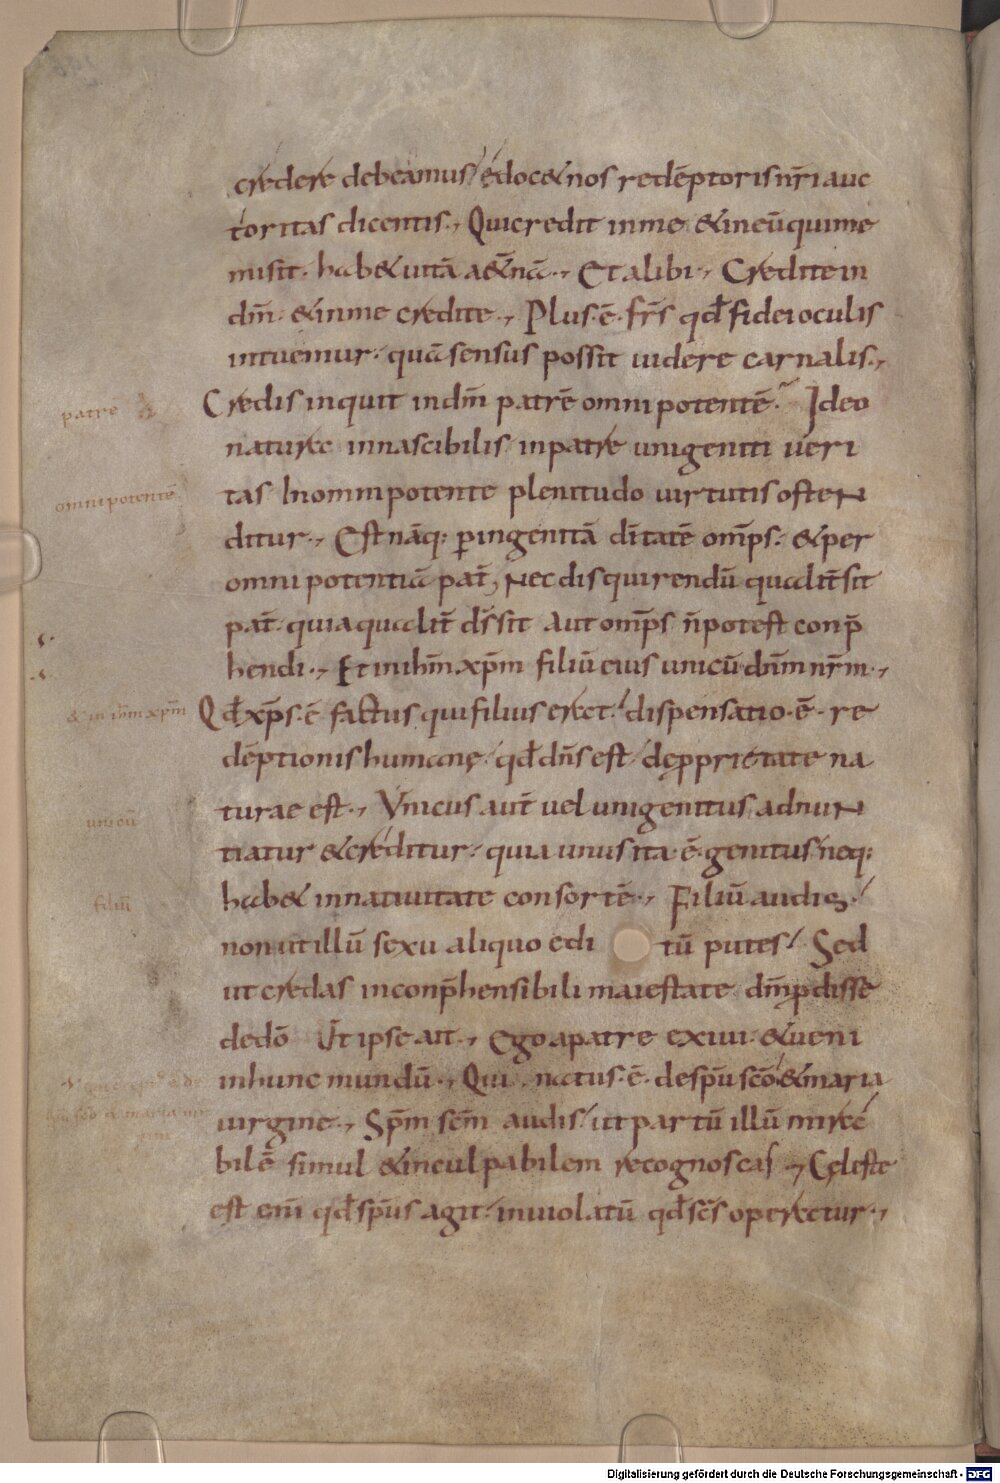 credere debeamus / edoc& nos redēptoris nr̄i auc
toritas dicentis., Qui credit in me & in eū qui me
misit. hab& uitā a&̄nā., Et alibi., Credite in
dm̄. & in me credite., Plus ē. fr̄s qđ fidei oculis
intuemur. quā sensus possit uidere carnalis.,
patrē
Credis inquit in dm̄ patrē omnipotentē. Ideo
naturae innascibilis in patre unigeniti ueri
omnipotentē
tas In omnipotente plenitudo uirtutis osten
ditur., Est nāq: p̱ ingenitā di̅tatē om̄ps. & per
omnipotentiā pat̄, Nec disquirendū qualit̄ sit
pat̄. quia qualit̄ ds̄ sit aut om̄ps n̄ potest conp̄
hendi., Et in ihm̄ xpm̄ filiū eius unicū dnm̄ nr̄m.,
& in ihm̄ xpm̄
Qđ xp̄s. ē factus qui filius erat / dispensatio. ē. re
dēptionis humanę / qđ dn̄s est / de p̱prietate na
turae est., Vnicus aut̄ uel unigenitus adnun
unicū
tiatur & creditur. quia unus ita ē. genitus / neq:
hab& in natiuitate consortē., Filiū audis. /
filiū
non ut illū sexu aliquo edi tū putes / Sed
ut credas inconp̄hensibili maiestate dm̄ p̱disse
de dō Ut ipse ait., Ego a patre exiui. & ueni
in hunc mundū., Qui natus. ē. de sp̄u scō & maria
uirgine., Sp̄m scm̄ audis / ut partū illū mira
bilē simul & inculpabilem recognoscas., Cęleste
est enī qđ sp̄us agit / inuiolatū qđ sc̄s operatur.,
Digitalisierung gefördert durch die Deutsche Forschungsgemeinschaft - DFG